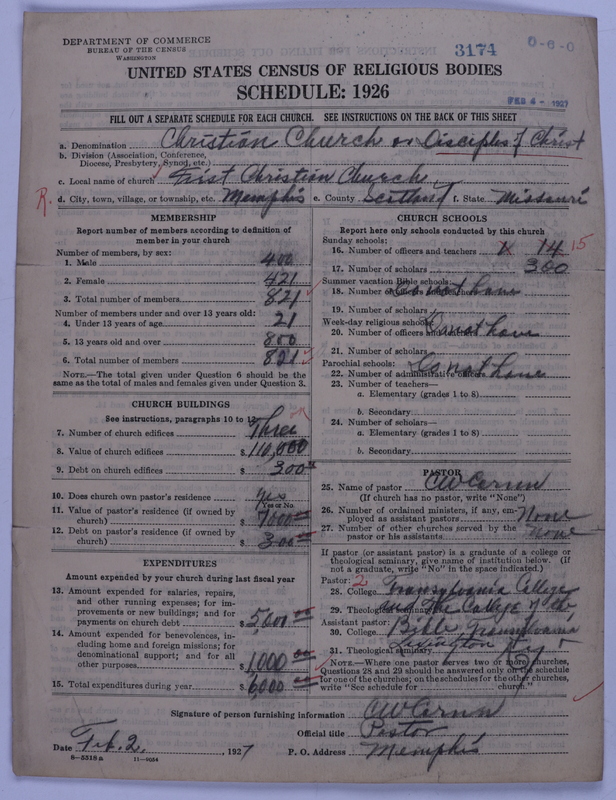 DEPARTMENT OF COMMERCE
BUREAU OF THE CENSUS
WASHINGTON
3174
0-6-0
UNITED STATES CENSUS OF RELIGIOUS BODIES
SCHEDULE: 1926
FEB 4 - 1927
FILL OUT A SEPARATE SCHEDULE FOR EACH CHURCH. SEE INSTRUCTIONS ON THE BACK OF THIS SHEET
a. Denomination Christian Church or Disciples of Christ
b. Division (Association, Conference,
Diocese, Presbytery, Synod, etc.)
c. Local name of church First Christian Church
R. d. City, town, village, or township, etc. Memphis e. County Scotland f. State Missouri
MEMBERSHIP
Report number of members according to definition of
member in your church
Number of members, by sex:
1. Male 400
2. Female 421
3. Total number of members 821
Number of members under and over 13 years old:
4. Under 13 years of age 21
5. 13 years old and over 800
6. Total number of members 821
NOTE.—The total given under Question 6 should be the
same as the total of males and females given under Question 3.
CHURCH BUILDINGS
See instructions, paragraphs 10 to 12
7. Number of church edifices Three
8. Value of church edifices $110,000
9. Debt on church edifices $300
10. Does church own pastor's residence yes
Yes or No
11. Value of pastor's residence (if owned by
church) $7000 00
12. Debt on pastor's residence (if owned by
church) $300 00
EXPENDITURES
Amount expended by your church during last fiscal year
13. Amount expended for salaries, repairs,
and other running expenses; for im-
provements or new buildings; and for
payments on church debt $5,000 00
14. Amount expended for benevolences, in-
cluding home and foreign missions; for
denominational support; and for all
other purposes $1,000 00
15. Total expenditures during year $6000 00
CHURCH SCHOOLS
Report here only schools conducted by this church
Sunday schools:
16. Number of officers and teachers 14 15
17. Number of scholars 300
Summer vacation Bible schools:
18. Number of officers and teachers Do not have
19. Number of scholars
Week-day religious schools:
20. Number of officers and teachers Do not have
21. Number of scholars
Parochial schools:
22. Number of administrative officers Do not have
23. Number of teachers—
a. Elementary (grades 1 to 8)
b. Secondary
24. Number of scholars—
a. Elementary (grades 1 to 8)
b. Secondary
PASTOR
25. Name of pastor
(If church has no pastor, write "None")
26. Number of ordained ministers, if any, em-
ployed as assistant pastors None
27. Number of other churches served by the
pastor or his assistants None
If pastor (or assistant pastor) is a graduate of a college or
theological seminary, give name of institution below. (If
not a graduate, write "No" in the space indicated.)
Pastor: 2
28. College Transylvania College
29. Theological seminary The College of the
Assistant pastor:
30. College Bible, Transylvania
31. Theological seminary Lexington Ky
NOTE.—Where one pastor serves two or more churches,
Questions 28 and 29 should be answered only on the schedule
for one of the churches; on the schedules for the other churches,
write "See schedule for church."
Signature of person furnishing information
Official title Pastor
Date Feb. 2, 1927 P. O. Address Memphis
8-5518a 11-9034